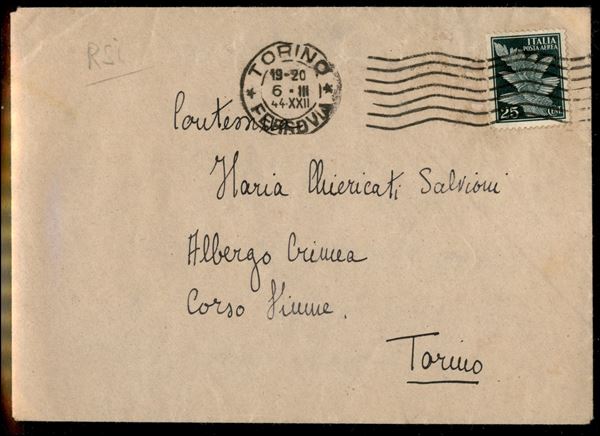 RSI
TORINO
19-20
6 · III
44·XXII
FERROVIA
ITALIA
POSTA AEREA
25 CENT.
Contessa
Maria Chiericati Salvioni
Albergo Crimea
Corso Fiume.
Torino